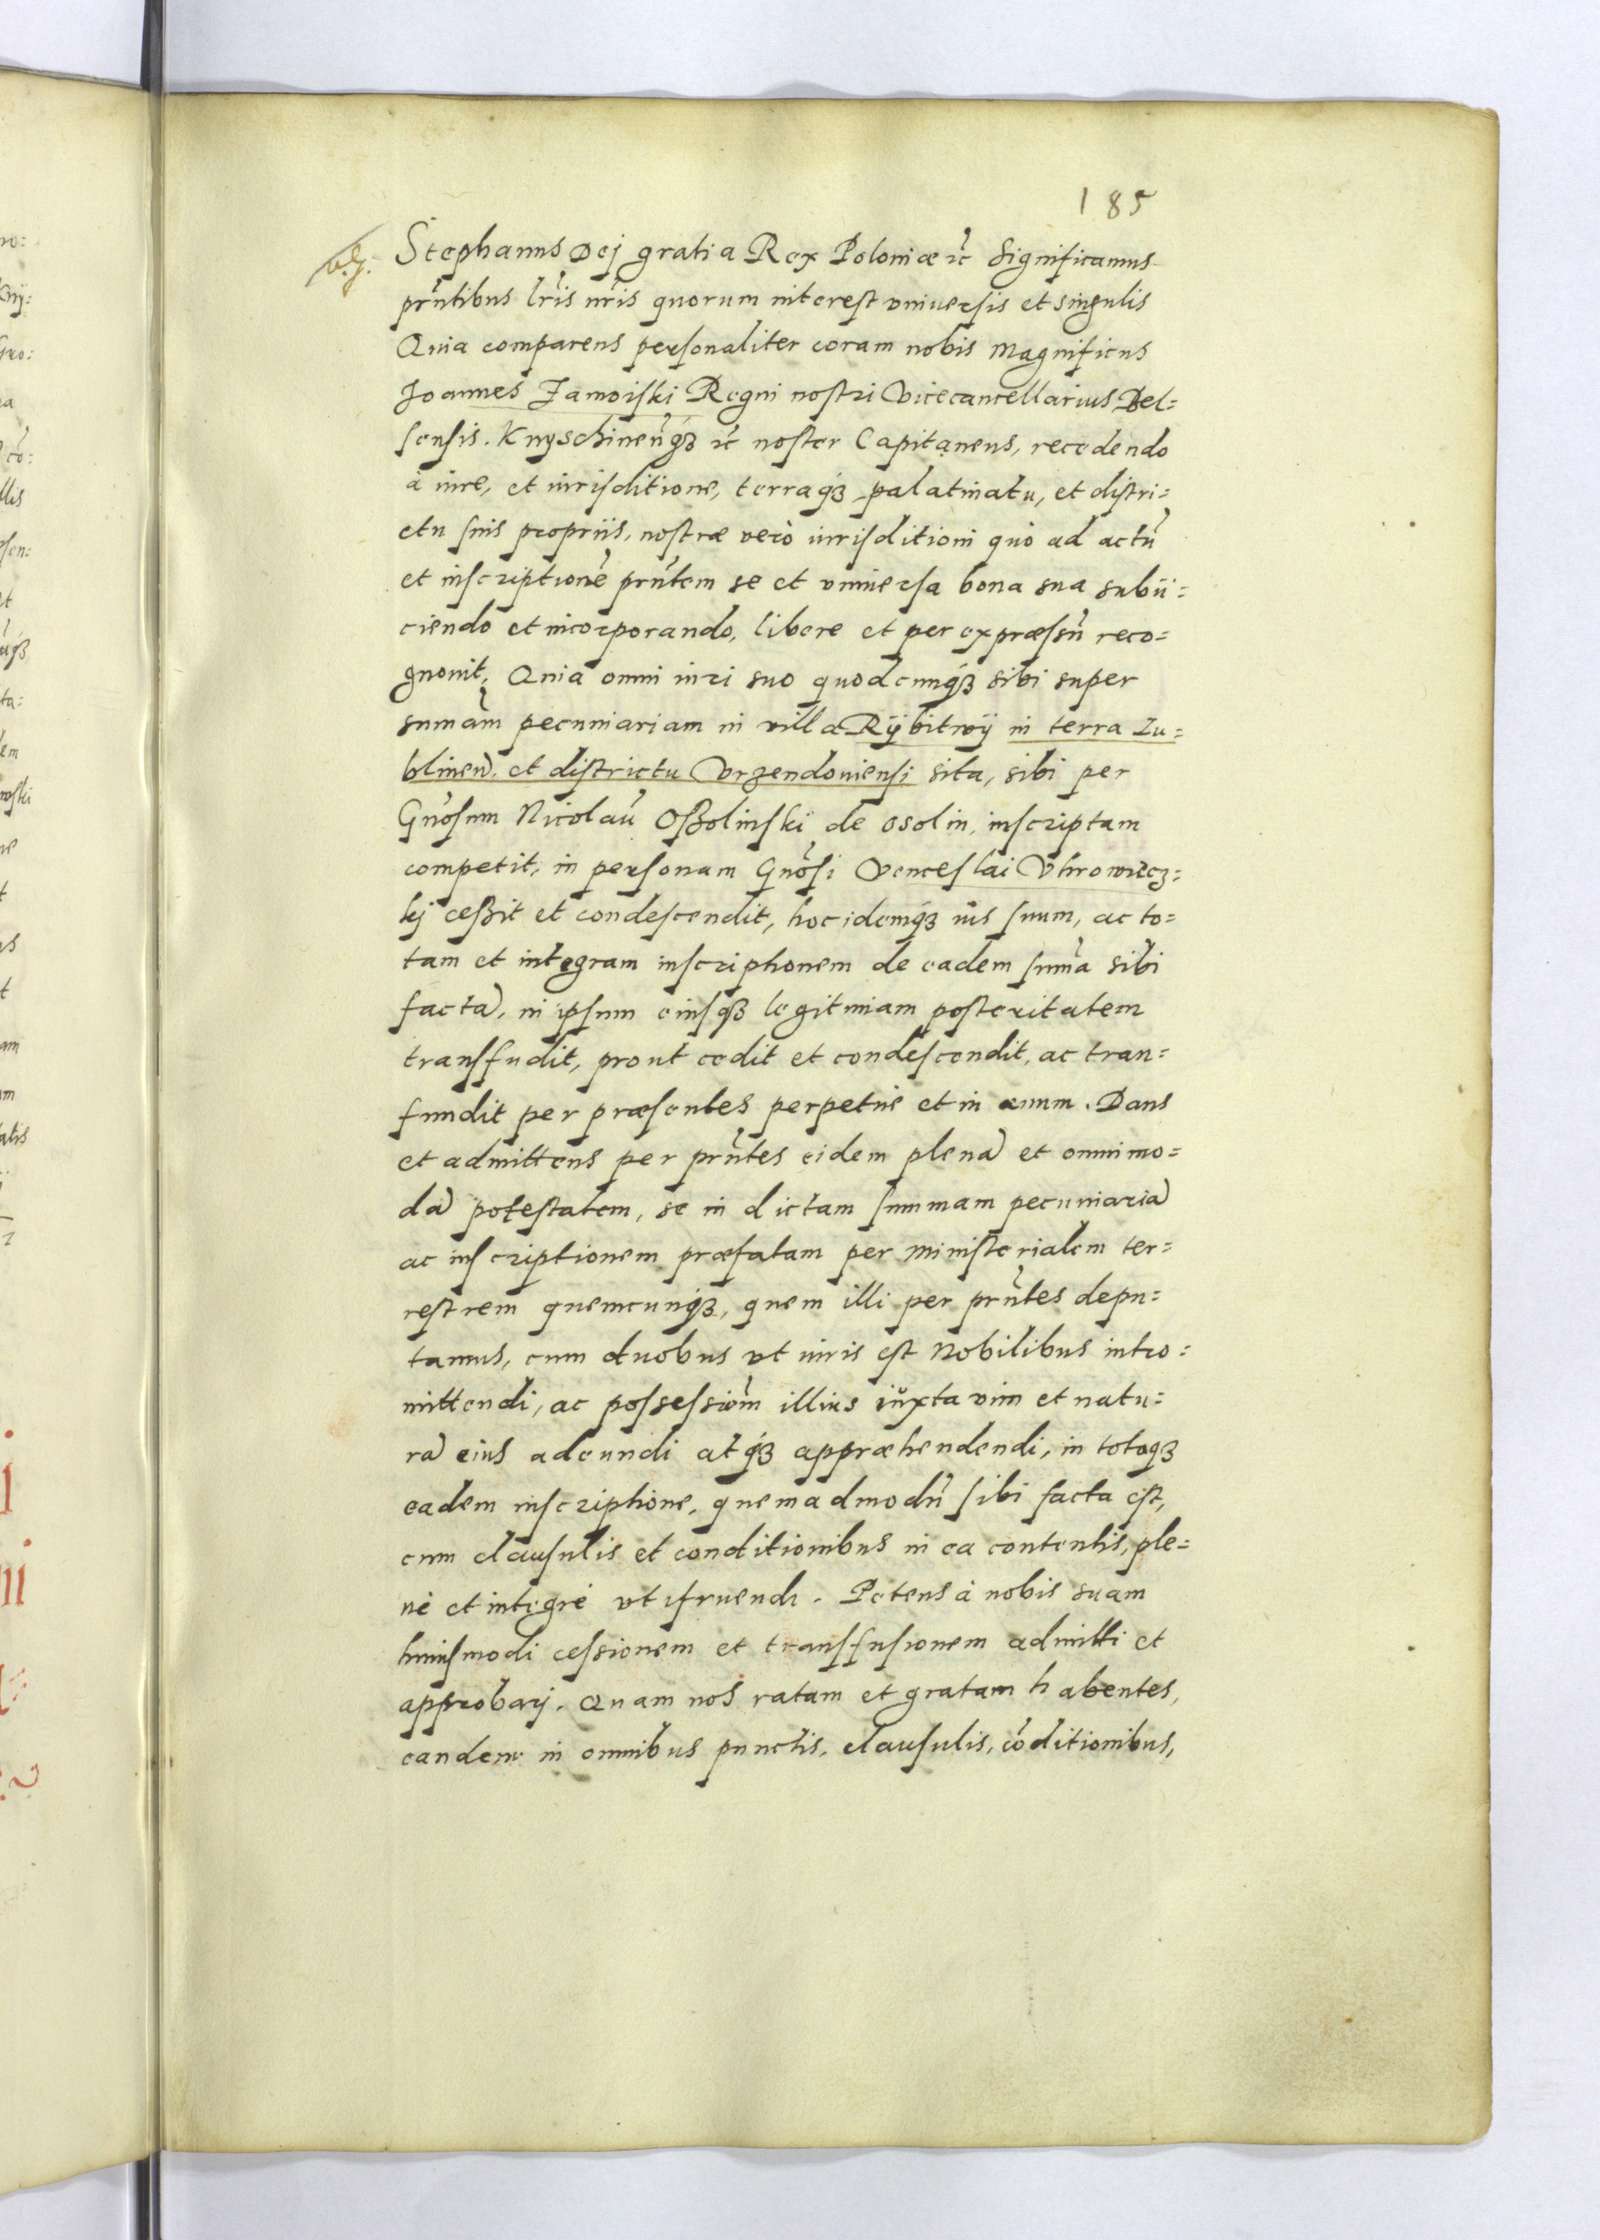 185
Stephanus Dej gratia Rex Poloniæ ĩc Significamus
pñtibus lris nris quorum interest vniuersis et singulis
Quia comparens personaliter coram nobis Magnificus
Joannes Zamoiski Regni nostri Vicecancellarius Bel=
sensis. Knyschineñqȝ ĩc noster Capitaneus, recedendo
à iure, et iurisditione, terraqȝ palatinatu, et distri=
ctu suis propriis, nostræ verò iurisditioni quò ad actũ
et inscriptionẽ pñtem se et vniuersa bona sua subii=
ciendo et incorporando, libere et per expræssũ reco=
gnouit, Quia omni iuri suo quodcunqȝ sibi super
sumãm pecuniariam in villa Rÿbitwÿ in terra Lu=
blineñ. et districtu Vrzendouiensi sita, sibi per
Gñosum Nicolaũ Oßolinski de Osolin, inscriptam
competit, in personam Gñosi Venceslai Vhrowiecz=
kj ceßit et condescendit, hoc idemqȝ ius suum, ac to=
tam et integram inscriptionem de eadem sum̃a sibi
factã, in ipsum eiusqȝ legitimam posteritatem
transfudit, prout cedit et condescendit, ac tran=
fundit per præsentes perpetuè et in æuum. Dans
et admittens per pñtes eidem plenã et omnimo=
dã potestatem, se in dictam summam pecuniariã
ac inscriptionem præfatam per ministerialem ter=
restrem quemcunqȝ, quem illi per pñtes depu=
tamus, cum duobus vt iuris est Nobilibus intro=
mittendi, ac possessiom̃ illius iŭxta vim et natu=
rã eius adeundi atqȝ appræhendendi, in totaqȝ
eadem inscriptione, quemadmodũ sibi facta est,
cum clausulis et conditionibus in ea contentis, ple=
nè et integrè vtifruendi. Petens à nobis suam
huiusmodi cessionem et transfusionem admitti et
approbarj. Quam nos ratam et gratam habentes,
eandem in omnibus punctis, clausulis, cõditionibus,